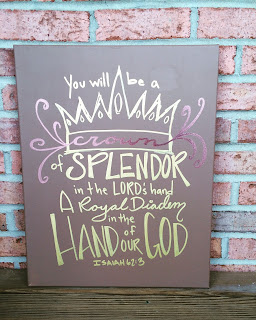 You will be a
crown
of SPLENDOR
in the LORD's hand
A Royal Diadem
in the
HAND of OUR GOD
ISAIAH 62:3